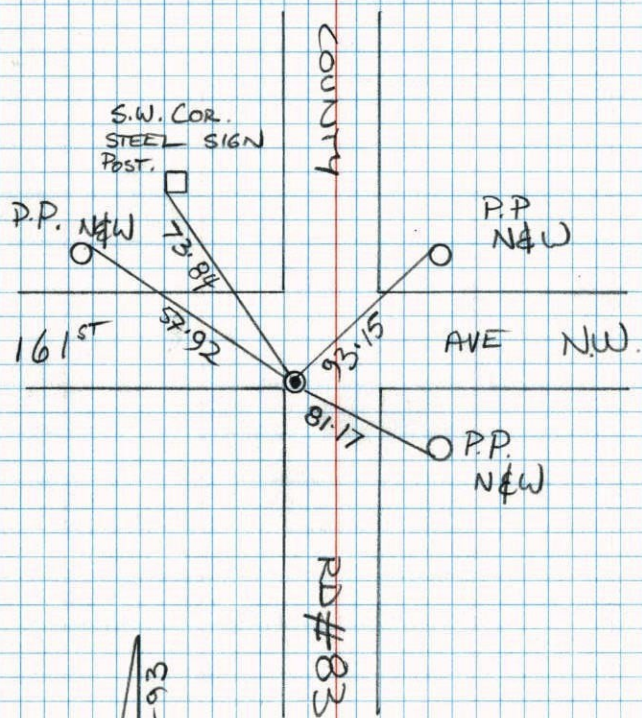 COUNTY
S.W. COR.
STEEL SIGN
POST.
P.P. N&W
P.P
N&W
73.84
57.92
93.15
161ST AVE N.W.
81.17
P.P.
N&W
RD #83
-93